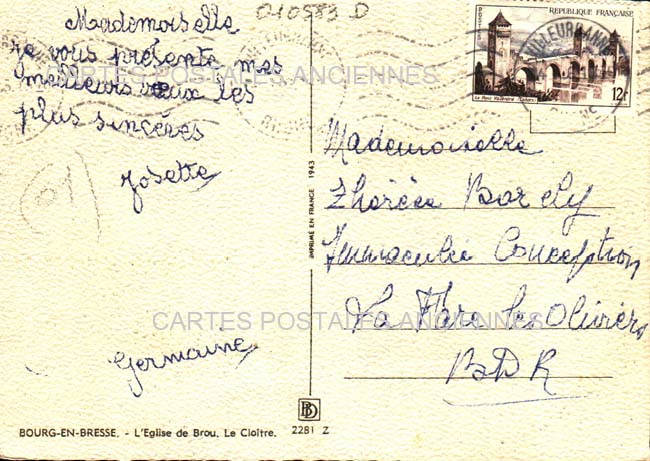 010583 D
Mademoiselle
je vous présente mes
meilleurs vœux les
plus sincères
Josette
(01)
Germaine
BOURG-EN-BRESSE. - L'Eglise de Brou. Le Cloître.
2281 Z
BD
IMPRIMÉ EN FRANCE 1943
POSTES
REPUBLIQUE FRANÇAISE
Le Pont Valentré (Cahors)
12F
Mademoiselle
Borely
Immaculée Conception
La Fare les Oliviers
BDR
CARTES POSTALES ANCIENNES
CARTES POSTALES ANCIENNES